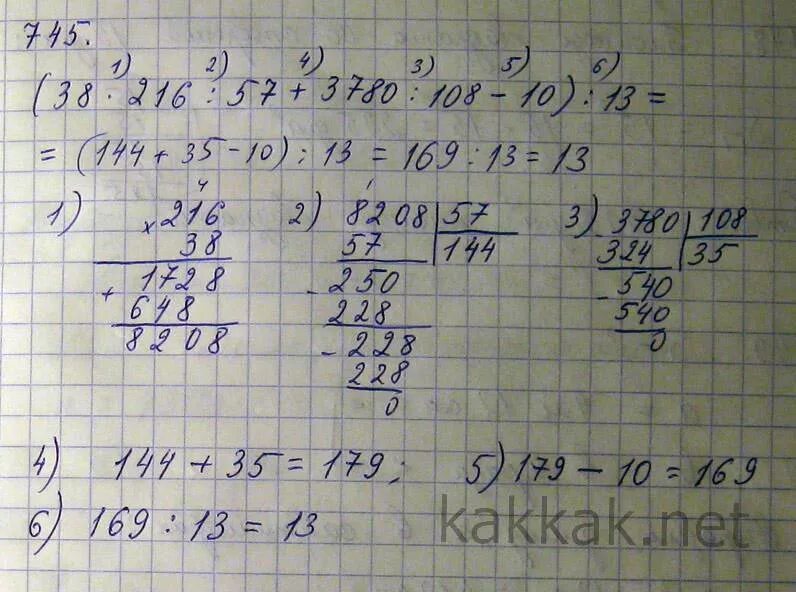 745.
1) 2) 4) 3) 5) 6)
(38 · 216 : 57 + 3780 : 108 - 10) : 13 =
= (144 + 35 - 10) : 13 = 169 : 13 = 13
1) 4
× 216
38
+ 1728
648
8208
2) 8208 | 57
57 | 144
- 250
228
- 228
228
0
3) - 3780 | 108
324 | 35
- 540
540
0
4) 144 + 35 = 179; 5) 179 - 10 = 169
6) 169 : 13 = 13
kakkak.net